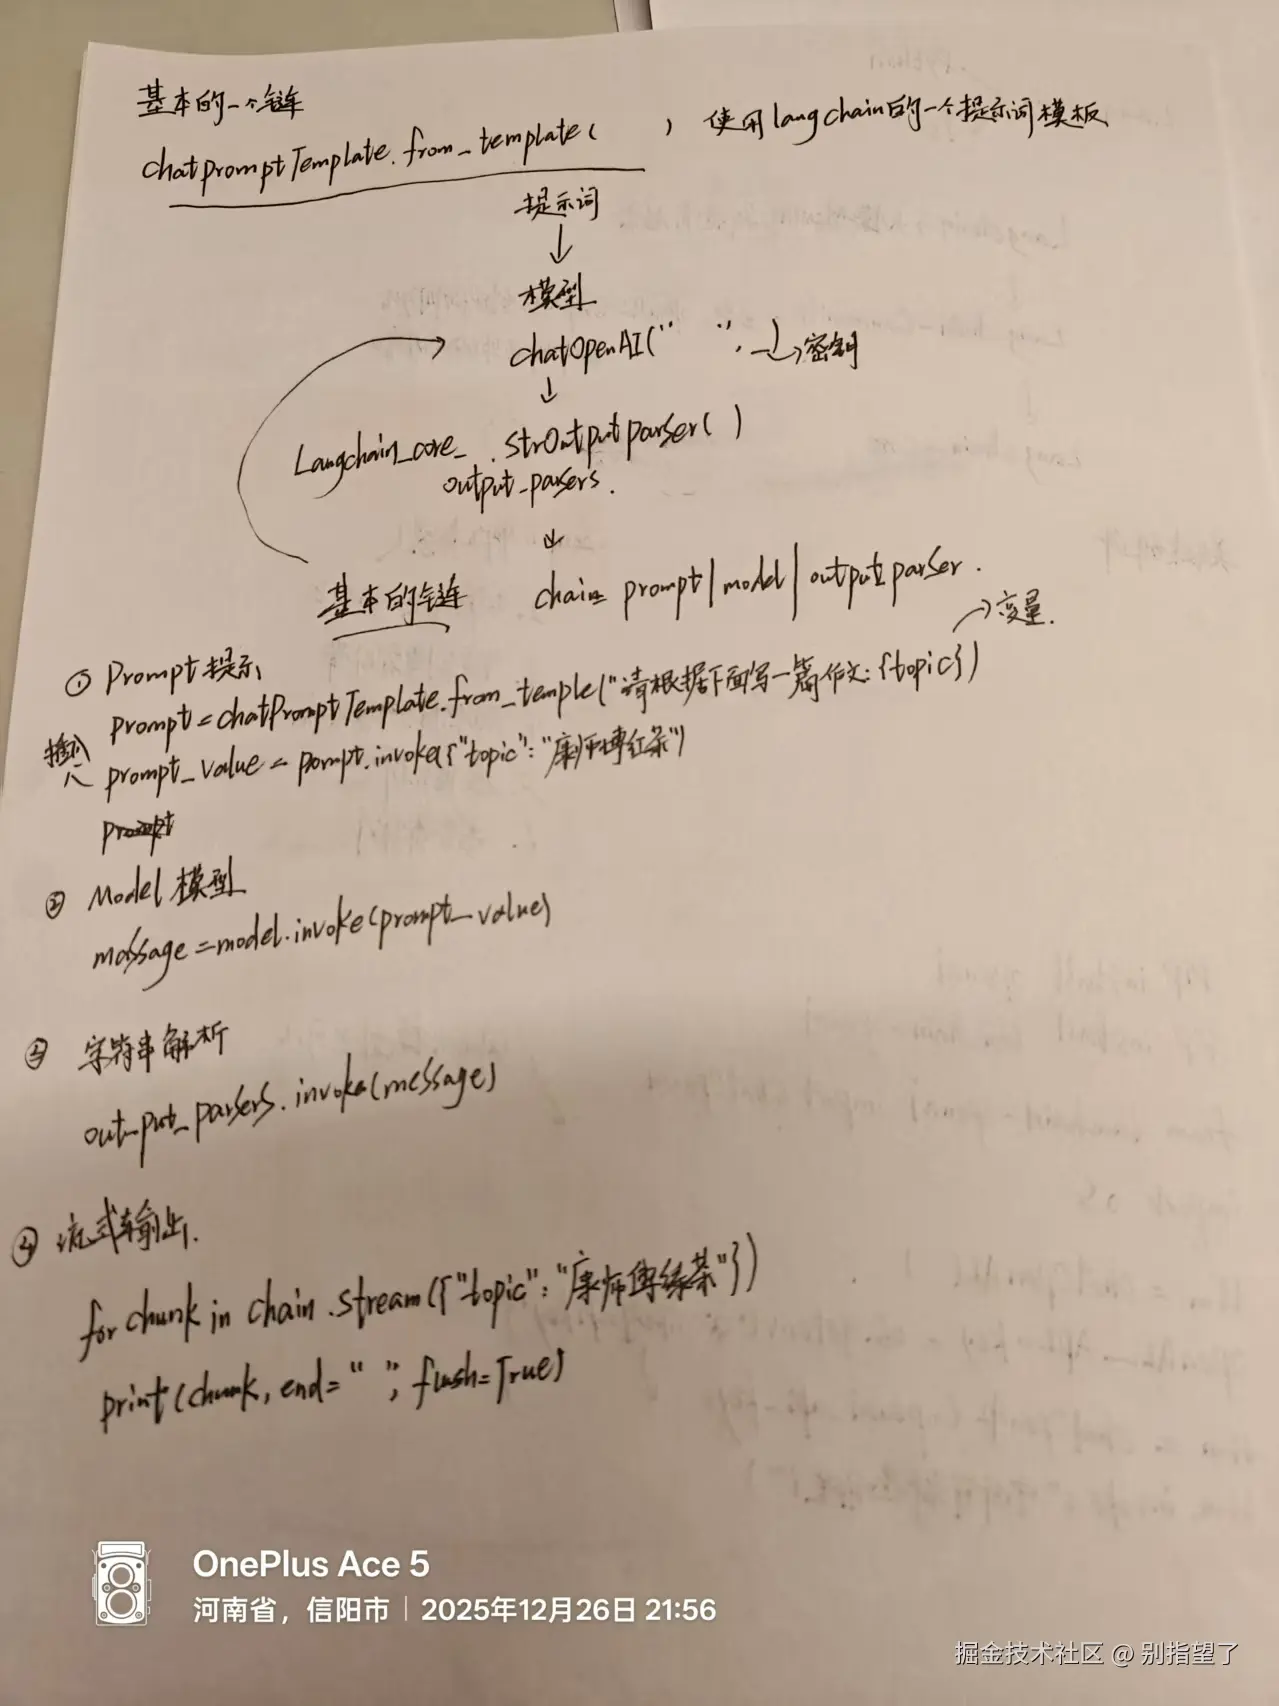 基本的一个链
chatpromptTemplate.from_template(       ) 使用langchain的一个提示词模板
提示词
↓
模型
chatOpenAI("   ", _) → 密钥
↓
Langchain_core_ .strOutputparser( )
output_parsers.
↓
基本的链 chain= prompt|model|output parser.
→变量.
① Prompt提示
prompt=chatPromptTemplate.from_temple("请根据下面写一篇作文:{topic})
prompt_value = prompt.invoke({"topic":"康师傅红茶")
prompt
② Model 模型
message=model.invoke(prompt_value)
③ 字符串解析
output_parsers.invoke(message)
④ 流式输出.
for chunk in chain.stream({"topic":"康师傅绿茶"})
print(chunk, end=" ", flush=True)
OnePlus Ace 5
河南省，信阳市 | 2025年12月26日 21:56
掘金技术社区 @ 别指望了